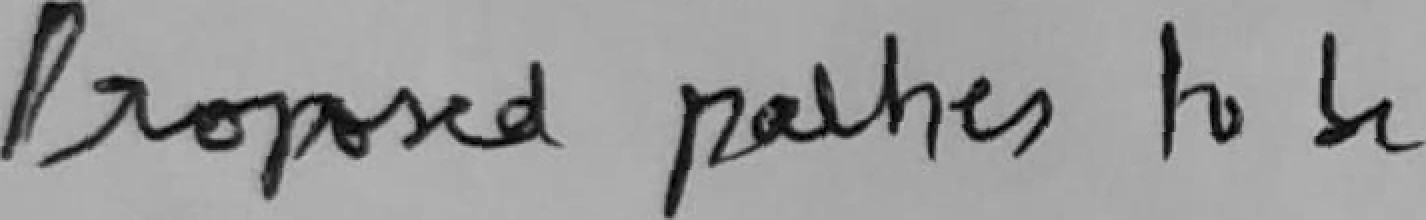 Proposed pathes to be